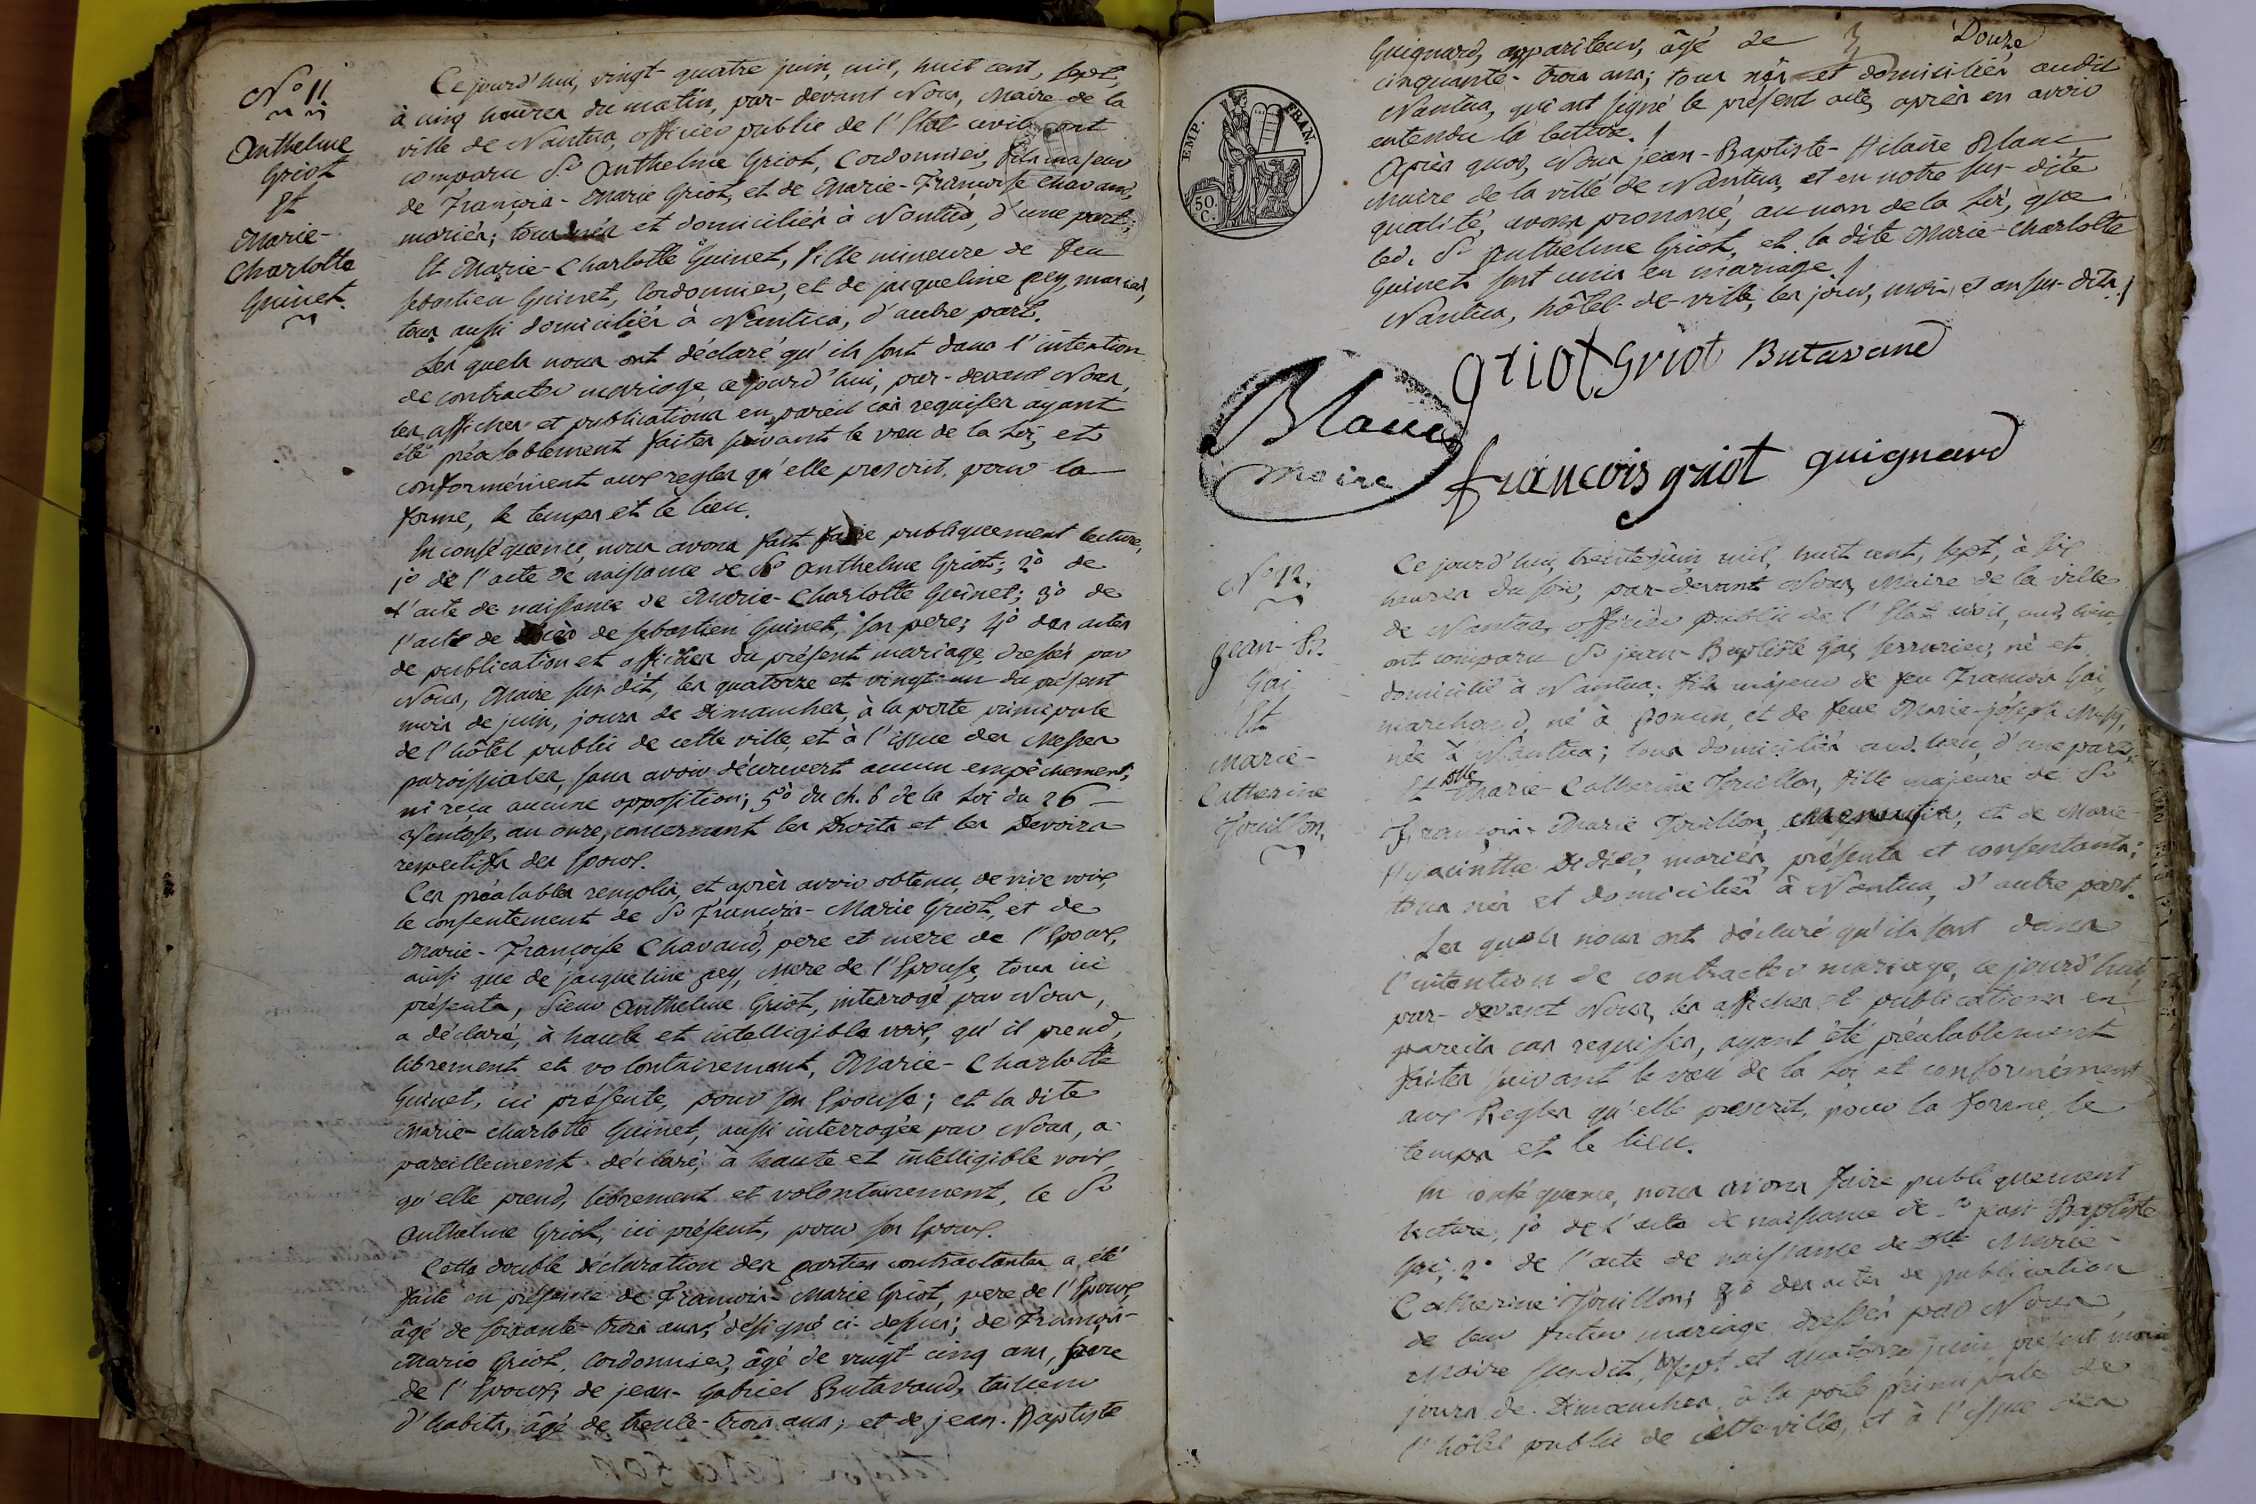 N.o 11
Anthelme
Griot
Et
Marie-
Charlotte
Guinet.
Ce jourd'hui, vingt-quatre juin, mil, huit cent, sept,
à cinq heures du matin, par-devant Nous, Maire de la
ville de Nantua, officier public de l'Etat civil, ont
comparu Sr Anthelme Griot, Cordonnier, fils majeur
de François-Marie Griot, et de Marie-Françoise Chavand,
mariés; tous nés et domiciliés à Nantua, d'une part;
Et Marie-Charlotte Guinet, fille mineure de feu
sebastien Guinet, Cordonnier, et de jacqueline pey, mariés,
tous aussi domiciliés à Nantua, d'autre part.
Les quels nous ont déclaré qu'ils sont dans l'intention
de contracter mariage, ce jourd'hui, par-devant Nous,
les affiches et publications en pareil cas requises ayant
été préalablement faites suivant le vœu de la Loi, et
conformément aux regles qu'elle prescrit, pour la
forme, le temps et le lieu.
En conséquence, nous avons fait faire publiquement lecture,
1o de l'acte de naissance de Sr Anthelme Griot; 2o de
l'acte de naissance de Marie-Charlotte Guinet; 3o de
l'acte de décès de sebastien Guinet, son pere; 4o des actes
de publication et affiches du présent mariage, dressés par
Nous, Maire sus-dit, les quatorze et vingt-un du présent
mois de juin, jours de Dimanches, à la porte principale
de l'hôtel public de cette ville, et à l'issue des Messes
paroissiales, sans avoir découvert aucun empêchement,
ni reçu aucune opposition; 5o du ch. 6 de la Loi du 26
Ventose, an onze, concernant les Droits et les Devoirs
respectifs des Epoux.
Ces préalables remplis, et après avoir obtenu, de vive voix,
le consentement de Sr François-Marie Griot, et de
Marie-Françoise Chavand, pere et mere de l'Epoux,
ainsi que de jacqueline pey, Mere de l'Epouse, tous ici
présents, Sieur Anthelme Griot, interrogé par Nous,
a déclaré, à haute et intelligible voix, qu'il prend,
librement et volontairement, Marie-Charlotte
Guinet, ici présente, pour son Epouse; et la dite
Marie-Charlotte Guinet, aussi interrogée par Nous, a
pareillement déclaré, à haute et intelligible voix,
qu'elle prend, librement et volontairement, le Sr
Anthelme Griot, ici présent, pour son Epoux.
Cette double déclaration des parties contractantes a été
faite en présence de François-Marie Griot, pere de l'Epoux,
âgé de soixante-trois ans, désigné ci-dessus; de François-
Marie Griot, Cordonnier, âgé de vingt-cinq ans, frere
de l'Epoux; de jean-Gabriel Butavand, tailleur
d'habits, âgé de trente-trois ans; et de jean-Baptiste
Douze
EMP. FRAN.
50. C.
Guignard, appariteur, âgé de
cinquante-trois ans; tous nés et domiciliés audit
Nantua, qui ont signé le présent acte, après en avoir
entendu la lecture.
Après quoi, Nous, jean-Baptiste-Hilaire Blanc
Maire de la ville de Nantua, et en notre sus-dite
qualité, avons prononcé, au nom de la Loi, que
led. Sr Anthelme Griot, et la dite Marie-Charlotte
Guinet sont unis en mariage.
Nantua, hôtel-de-ville, les jour, mois et an sus-dits.
griot Griot Butavand
Blanc
Maire
françois griot guignard
N.o 12.
jean-B.
Gai
Et
Marie-
Catherine
Jouillon.
Ce jourd'hui, trente juin mil, huit cent, sept, à six
heures du soir, par-devant Nous, Maire de la ville
de Nantua, officier public de l'Etat civil, aud. lieu
ont comparu Sr jean-Baptiste Gai, serrurier, né et
domicilié à Nantua, fils majeur de feu François Gai,
marchand, né à Poncin, et de feue Marie-joseph
née à Nantua; tous domiciliés aud. lieu, d'une part;
Et Dlle Marie-Catherine Jouillon, fille majeure de Sr
François-Marie Jouillon, Menuisier, et de Marie-
Hyacinthe Didier, mariés, présents et consentants;
tous nés et domiciliés à Nantua, d'autre part.
Les quels nous ont déclaré qu'ils sont dans
l'intention de contracter mariage, ce jourd'hui,
par-devant Nous, les affiches et publications en
pareils cas requises, ayant été préalablement
faites suivant le vœu de la Loi et conformément
aux Regles qu'elle prescrit, pour la forme, le
temps et le lieu.
En conséquence, nous avons faire publiquement
lecture, 1o de l'acte de naissance de Sr jean-Baptiste
Gai; 2o de l'acte de naissance de Dlle Marie-
Catherine Jouillon; 3o des actes de publication
de leur futur mariage dressés par Nous,
Maire sus-dit, les sept et quatorze juin présent mois
jours de Dimanches, à la porte principale de
l'hôtel public de cette ville, et à l'issue des